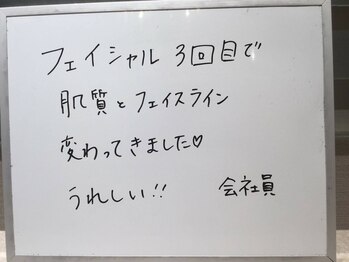 フェイシャル 3回目で
肌質とフェイスライン
変わってきました♡
うれしい!! 会社員